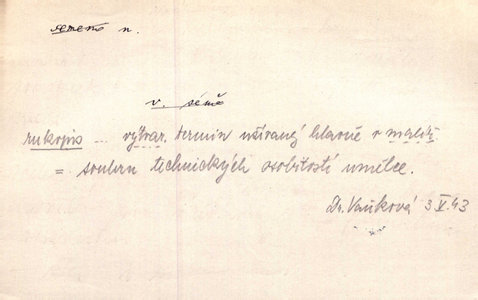 n.
v. sémě
rukopis ... výtvar. termín užívaný hlavně v
= souhrn technických osobitostí umělce.
Dr. Vaňková 3 V. 43